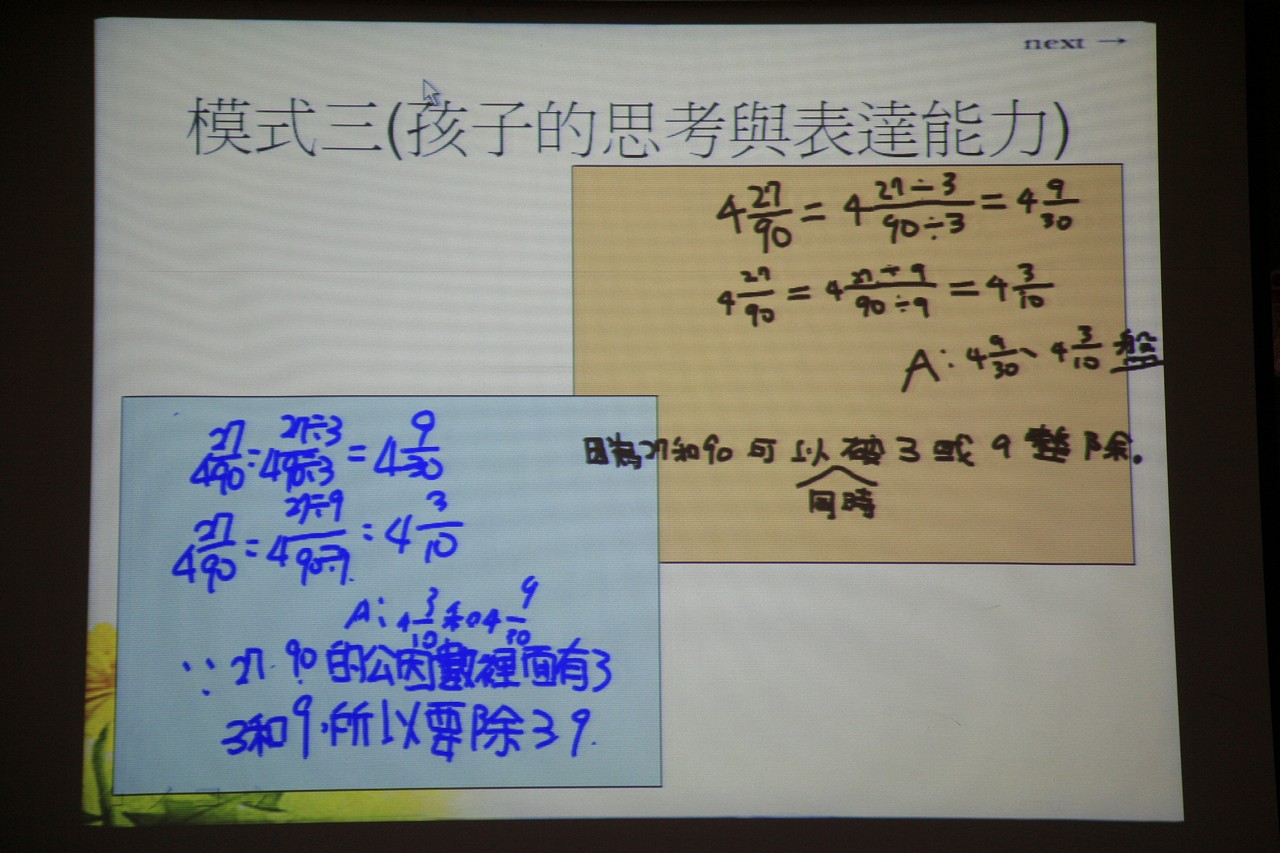 next →
模式三(孩子的思考與表達能力)
4 27/90 = 4 27÷3/90÷3 = 4 9/30
4 27/90 = 4 27÷9/90÷9 = 4 3/10
A: 4 9/30、4 3/10 盤
因為27和90可以被3或9整除。
同時
4 27/90 = 4 27÷3/90÷3 = 4 9/30
4 27/90 = 4 27÷9/90÷9 = 4 3/10
A: 4 3/10 和 4 9/30
∵ 27. 90的公因數裡面有3
3和9,所以要除3 9.